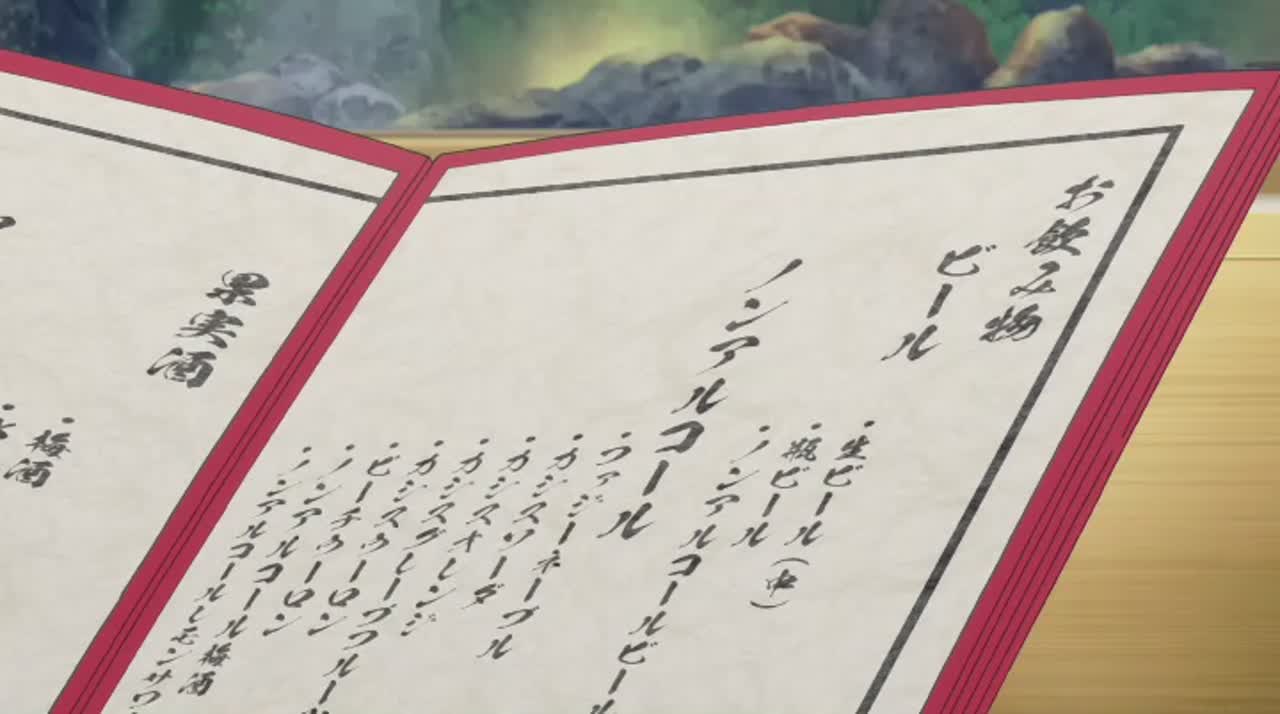 お飲み物
ビール
・生ビール
・瓶ビール(中)
・ノンアルコールビール
ノンアルコール
・ファジーネーブル
・カシスソーダ
・カシスオレンジ
・カシスグレープフルー
・カシスウーロン
・ピーチウーロン
・ノンアルコール梅酒
・ノンアルコールレモンサワ
果実酒
・梅酒